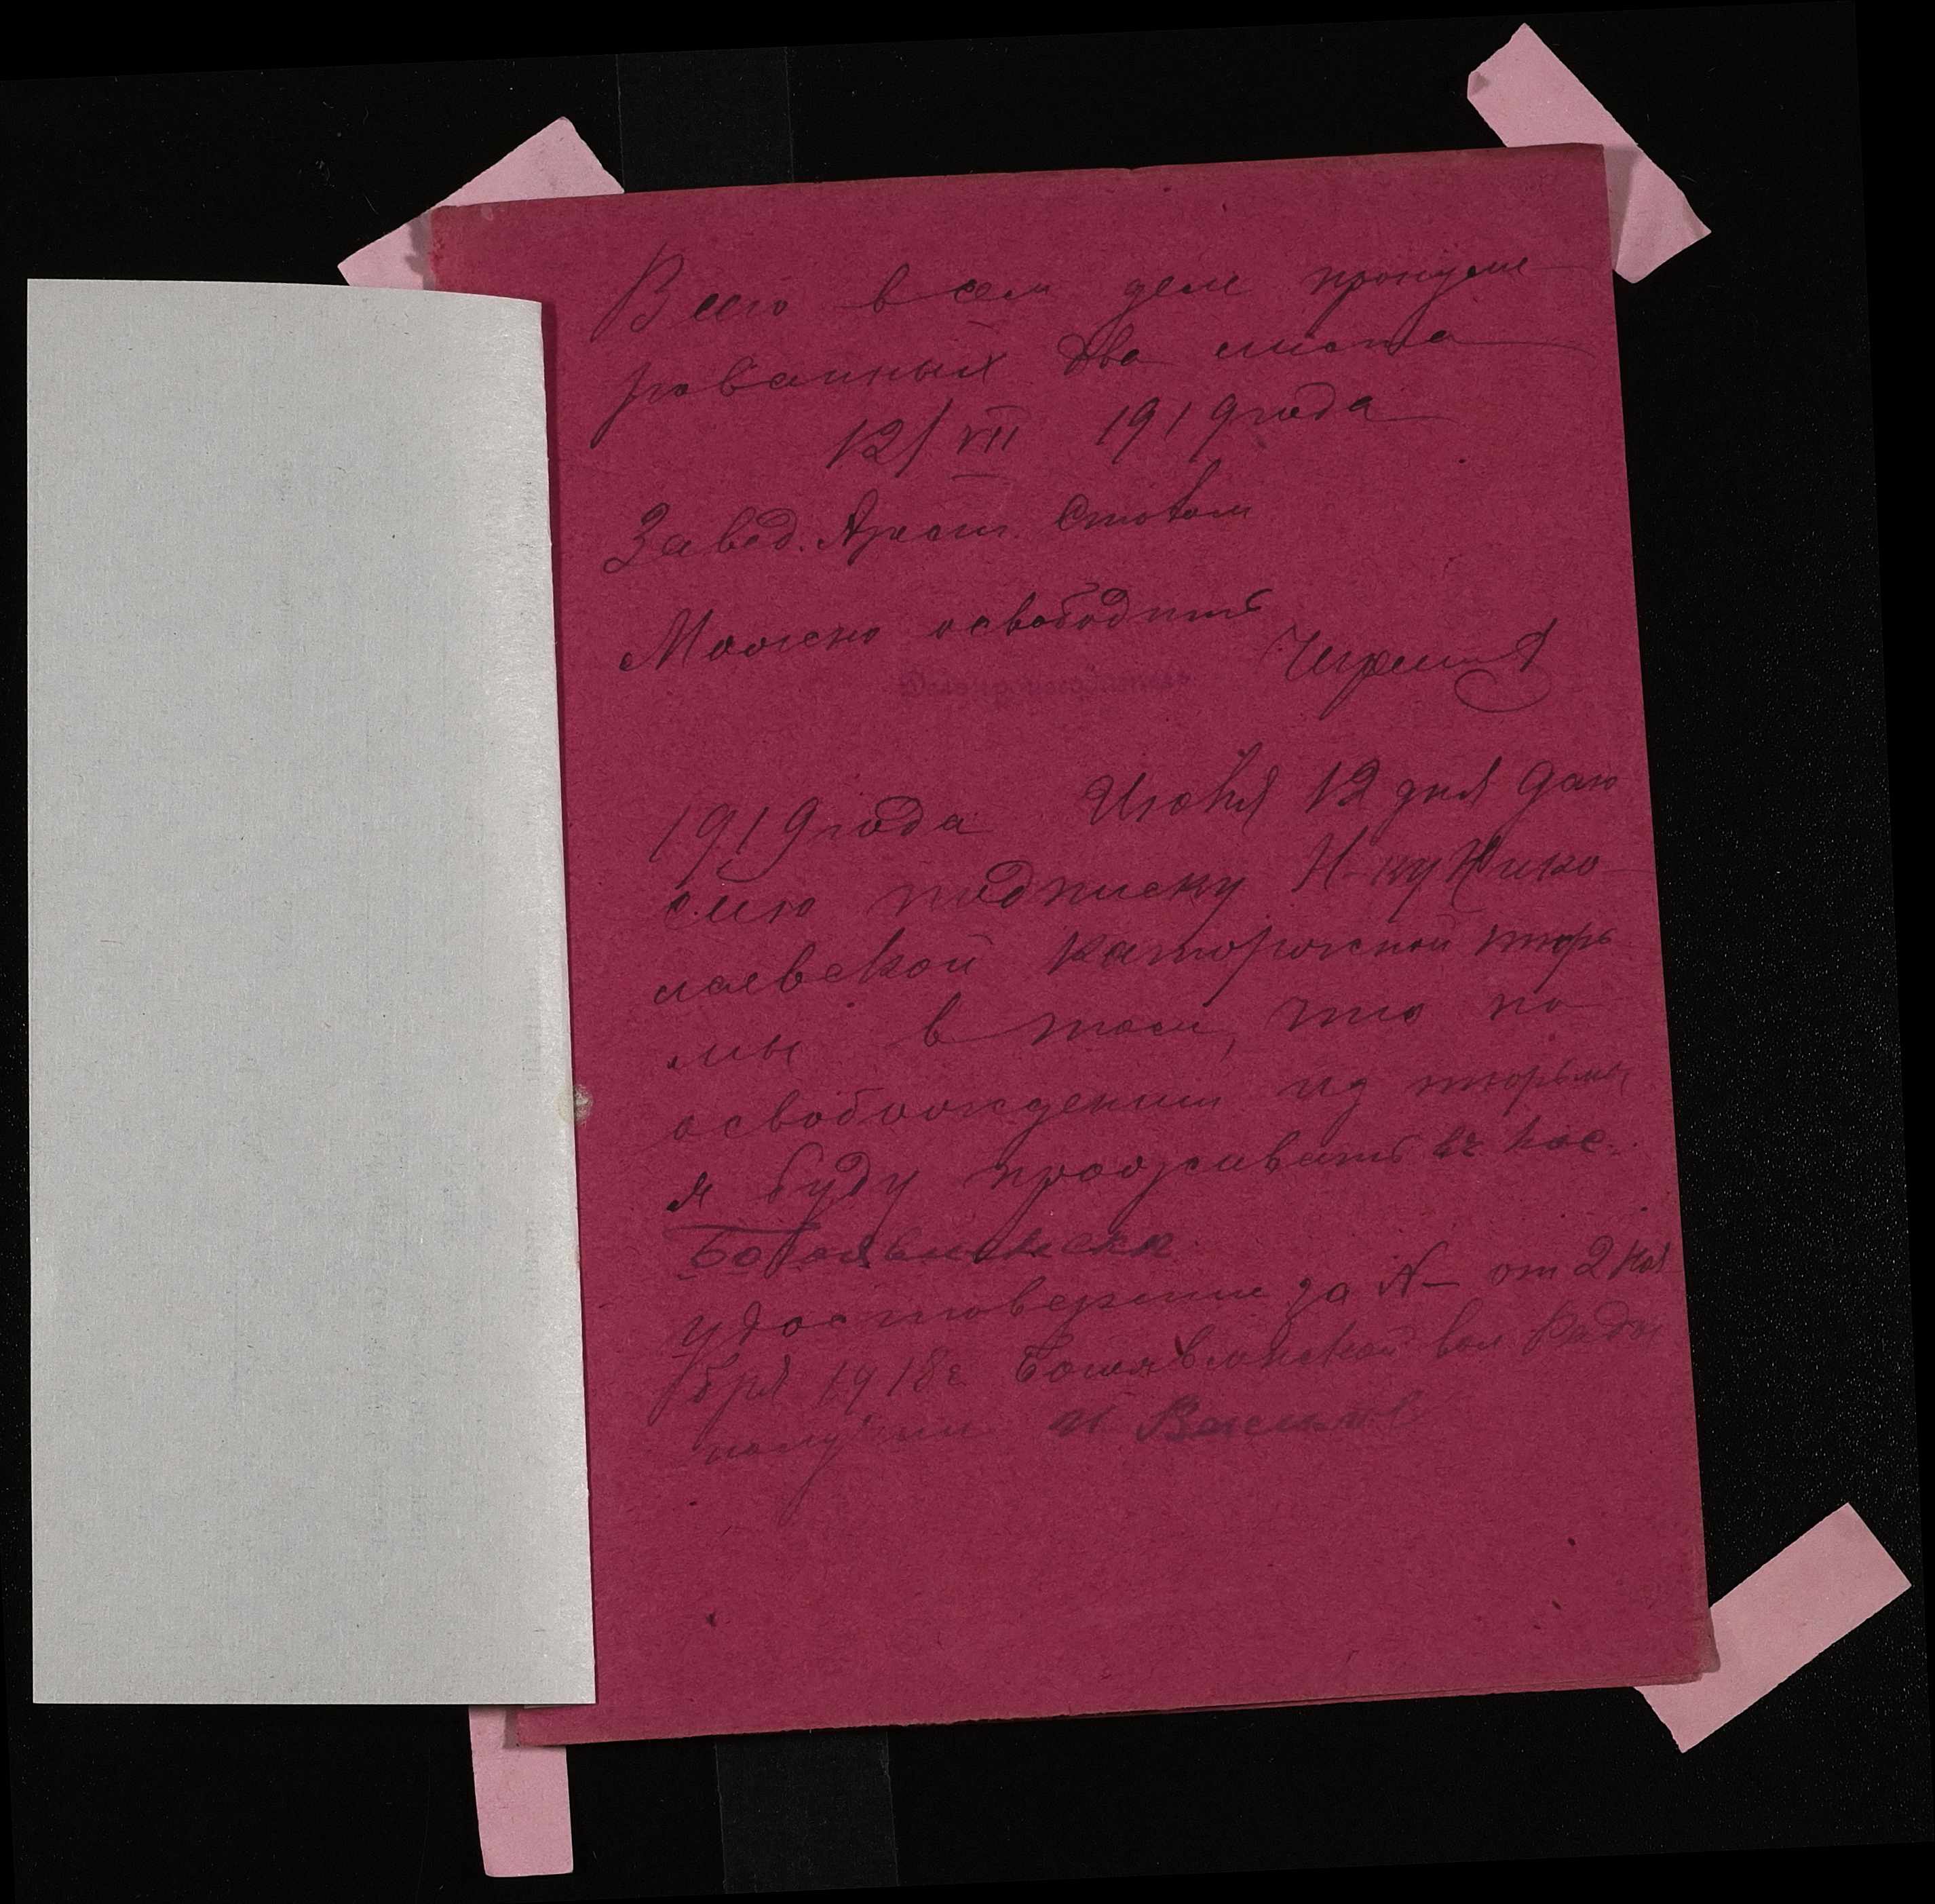 Всего в сем деле пронуме
рованных два листа
12/VII 1919 года
Завед. Арест. Столом
Можно освободить
1919 года Июля 12 дня даю
сию подписку Н-ку Нико
лаевской каторжной тюрь
мы в том, что по
освобождении из тюрьмы
я буду проживать в пос.
Богоявленске
Удостоверение за № от 2 ноя
бря 1918 г Богоявленской вол Рады
получил И Васильев